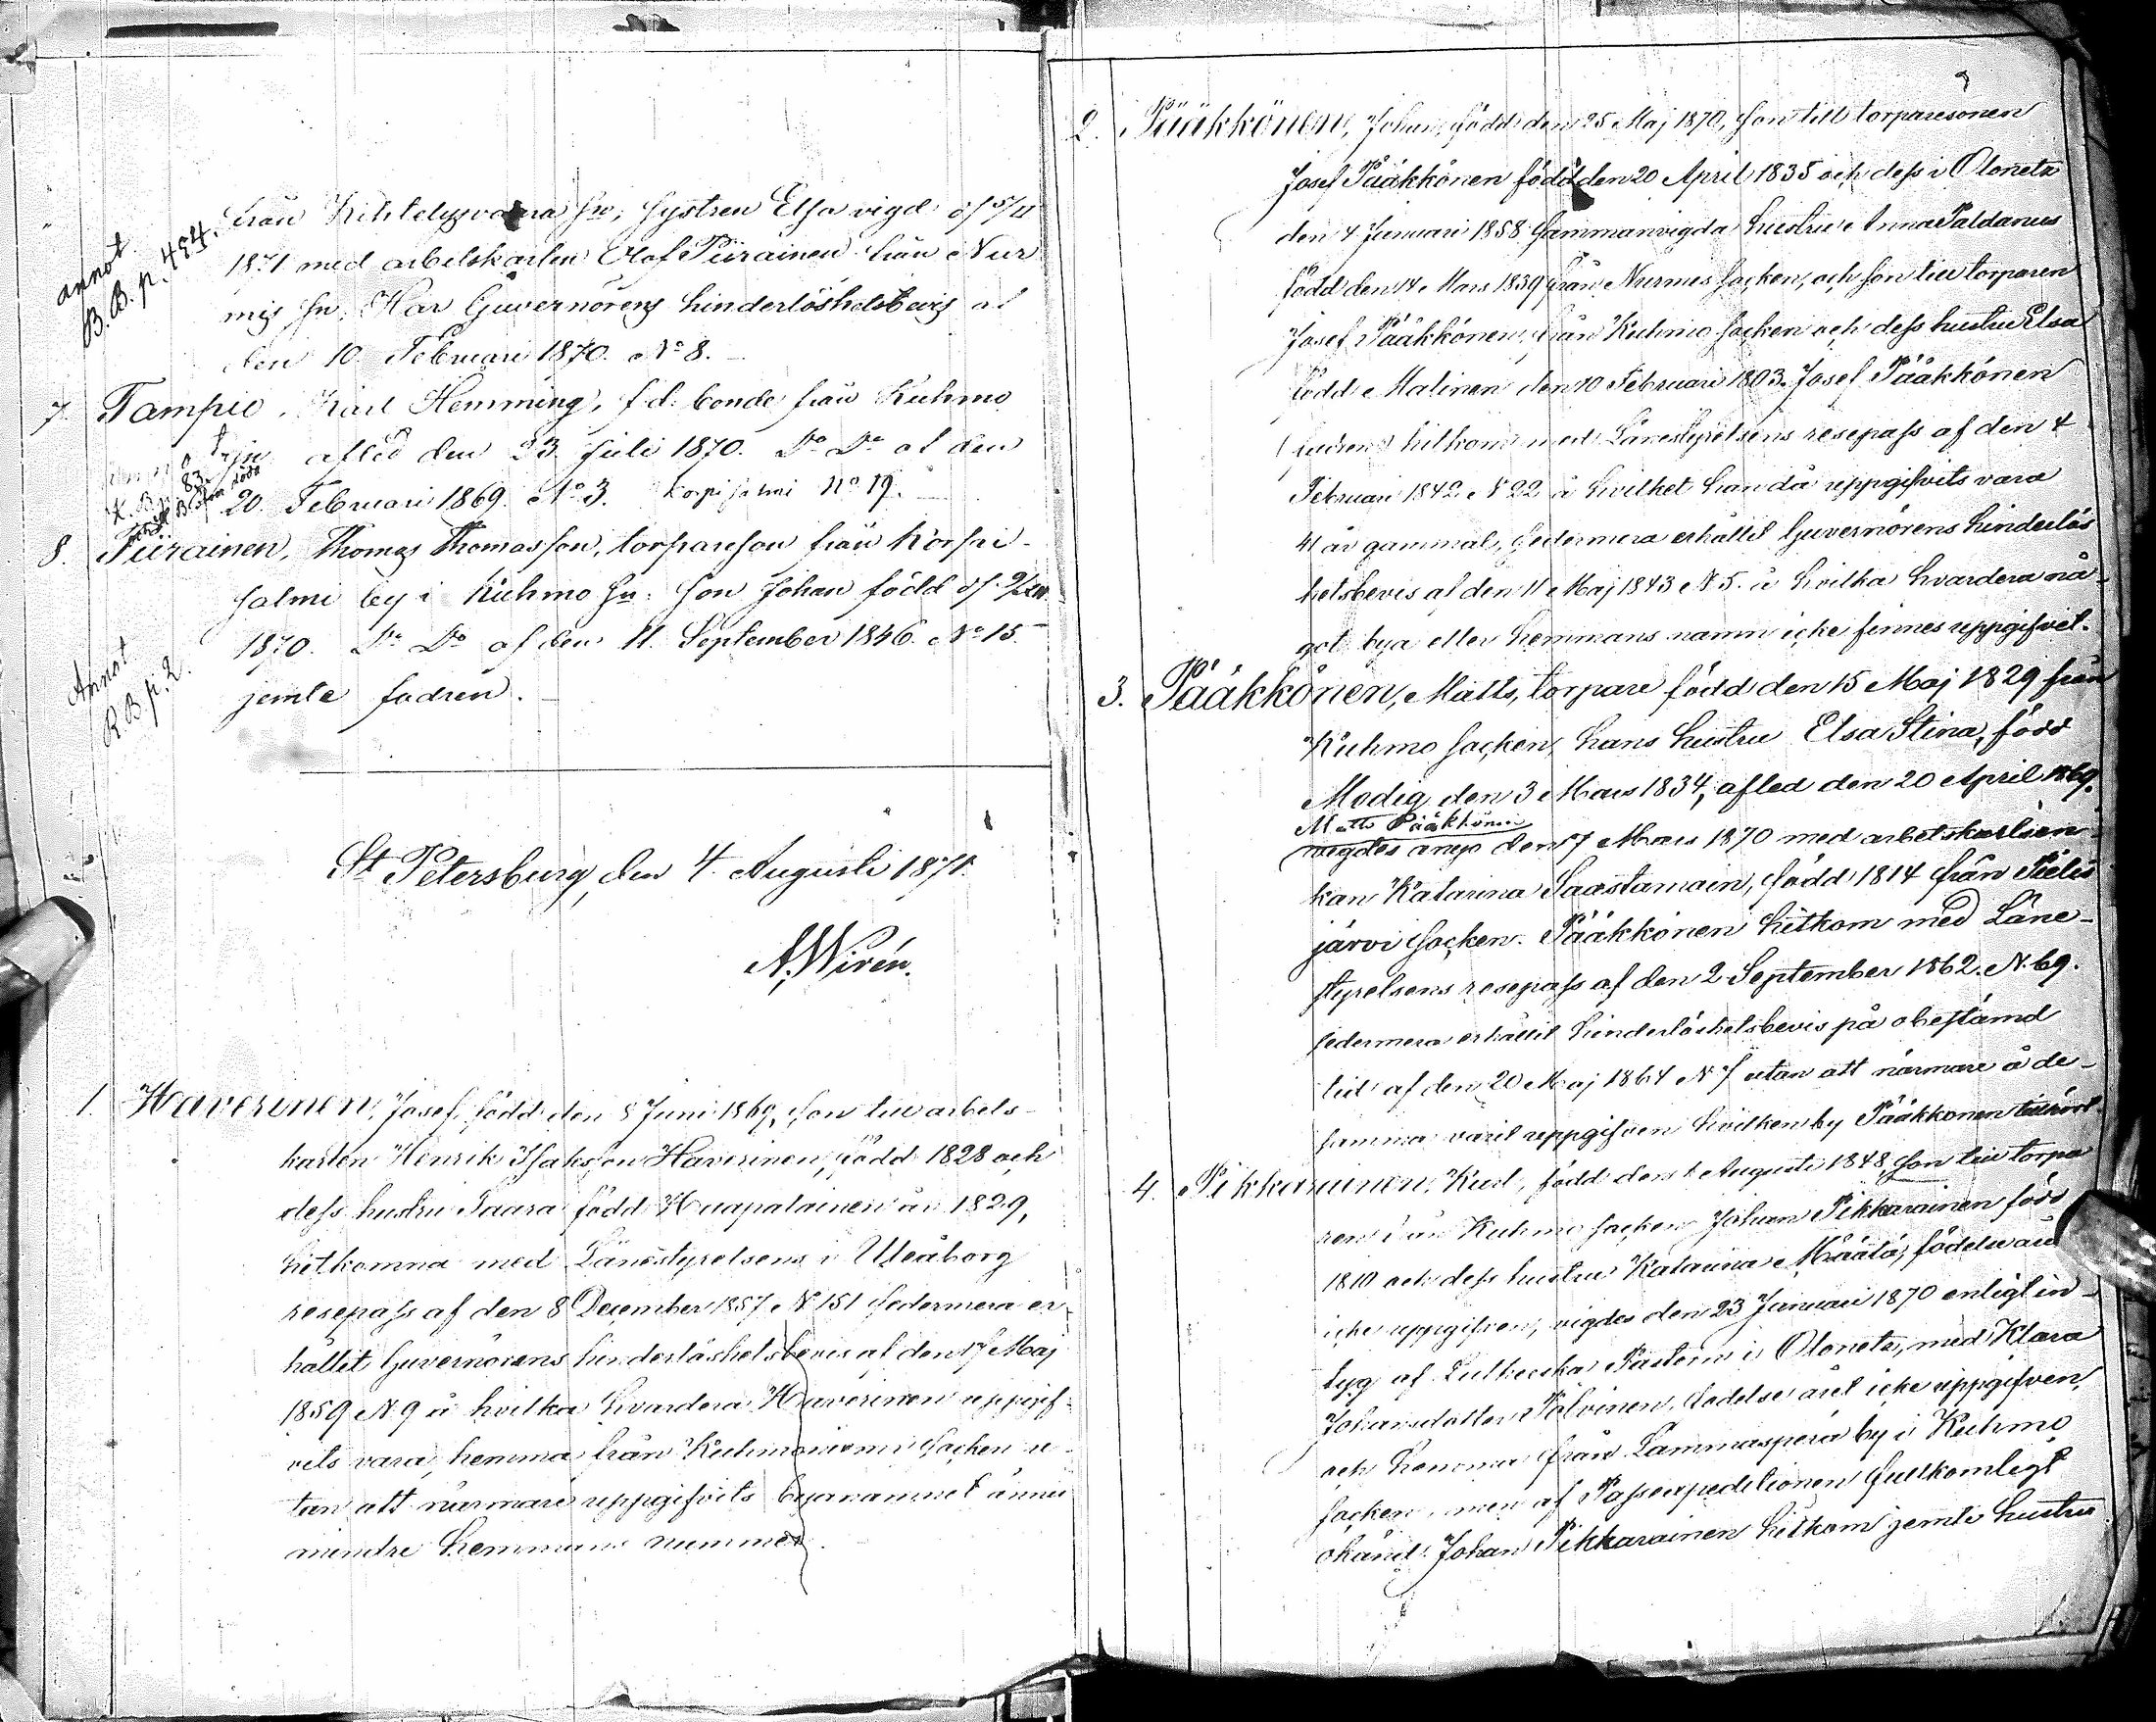 från Kihtelysvaara sn, systren Elsa vigd d. 5/11
1871 med arbetskarlen Olof Piirainen från Nur
mis sn. Har Guvernörens hinderlöshetsbevis af
den 10 Februari 1870. No 8.
annot.
B. B. p. 484.
7. Tampio, Karl Henming, f.d. bonde från Kuhmo
sn afled den 23 Juli 1870. Do Do af den
20 Februari 1869. No 3. Korpisalmi No 19.
K. B. p. 83.
8. Piirainen, Thomas Thomasson, torpareson från Korpi-
salmi by i Kuhmo sn: son Johan född d.
1870. Do Do af den 11. September 1846. No 15.
jemte fadren.
Annot
R. B p. 2.
St Petersburg, den 4 Augusti 1871.
A. Wirén.
1. Haverinen, Josef, född den 8 Juni 1869, son till arbets-
karlen Henrik Isaksson Haverinen, född 1828 och
dess hustru Saara född Huapalainen år 1829,
hitkomna med Länestyrelsens i Uleåborg
resepass af den 8 December 1857 N 151 sedermera er-
hållit Guvernörens hinderlöshetsbevis af den 17 Maj
1859 N 9 å hvilka hvardera Haverinen uppgif-
vits vara hemma från Kuhmoniemi socken u-
tan att närmare uppgifvits byanamnet ännu
mindre hemmans nummer.
2. Pääkkönen, Johan, född den 25 Maj 1870, son till torparesonen
Josef Pääkkönen född den 20 April 1835 och dess i Olonetz
den 4 Januari 1858 sammanvigda hustru Anna Paldanius
född den 14 Mars 1839 från Nurmes socken, och son till torparen
Josef Pääkkönen från Kuhmo socken och dess hustru Elsa
född Malinen den 10 Februari 1803. Josef Pääkkönen
(fadren) hitkom med Länestyrelsens resepass af den 4
Februari 1842 N 22 å hvilket han då uppgifvits vara
41 år gammal, sedermera erhållit Guvernörens hinderlös
hetsbevis af den 11 Maj 1843 N 5. å hvilka hvardera nå-
got bya eller hemmans namn icke finnes uppgifvet.
3. Pääkkönen, Matts, torpare född den 15 Maj 1829 från
Kuhmo socken, hans hustru Elsa Stina, född
Modig den 3 Mars 1834, afled den 20 April 1869.
Matts Pääkkönen
vigdes ånyo den 17 Mars 1870 med arbetskarlsen
kan Katarina Saastamoin, född 1814 från Pielis
järvi socken. Pääkkönen hitkom med Läne-
styrelsens resepass af den 2 September 1862. N. 69.
sedermera erhållit hinderlöshetsbevis på obestämd
tid af den 20 Maj 1864 N 7 utan att närmare å de-
samma varit uppgifven hvilken by Pääkkönen tillhört.
4. Pikkarainen, Karl, född den 1 Augusti 1848, son till torpa
ren från Kuhmo socken Johan Pikkarainen född
1810 och dess hustru Katarina Määtä, födelseåret
icke uppgifven, vigdes den 23 Januari 1870 enligt in-
tyg af Lutherska Pastorn i Olonetz, med Klara
Johansdotter Polvinen, födelse året icke uppgifven,
och hemma från Lammasperä by i Kuhmo
socken, men af Passexpeditionen fullkomligt
okänd. Johan Pikkarainen hitkom jemte hustru